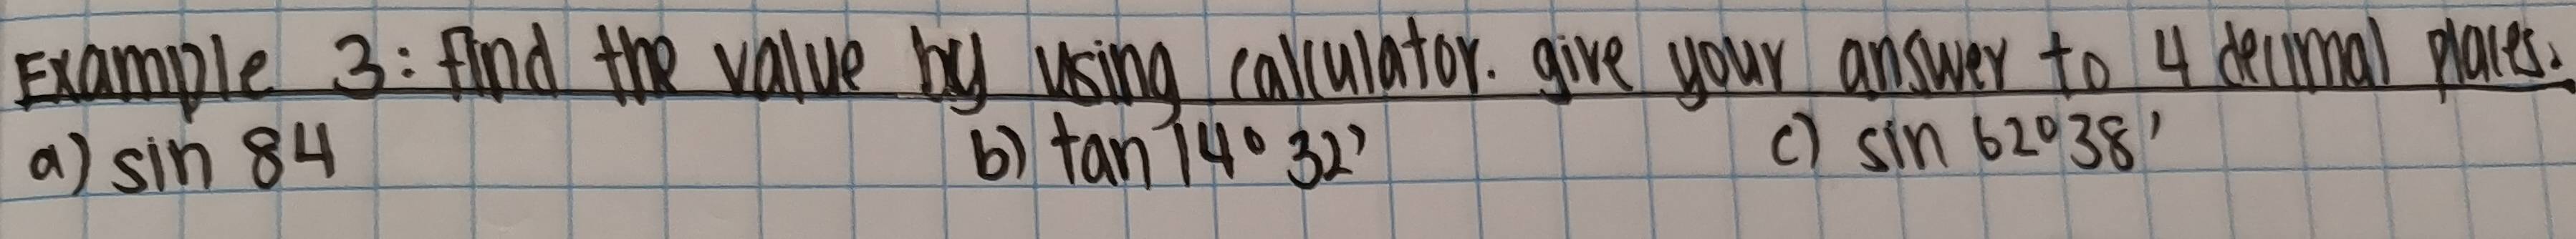 Example 3: find the value by using calculator. give your answer to 4 decimal places.
a) sin 84 b) tan 14° 32' c) sin 62°38'